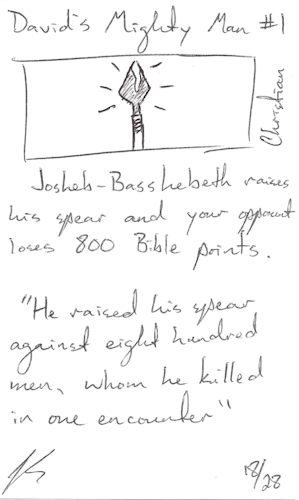 David's Mighty Man #1
Christian
Josheb-Basshebeth raises
his spear and your opponent
loses 800 Bible points.
"He raised his spear
against eight hundred
men, whom he killed
in one encounter"
18/28